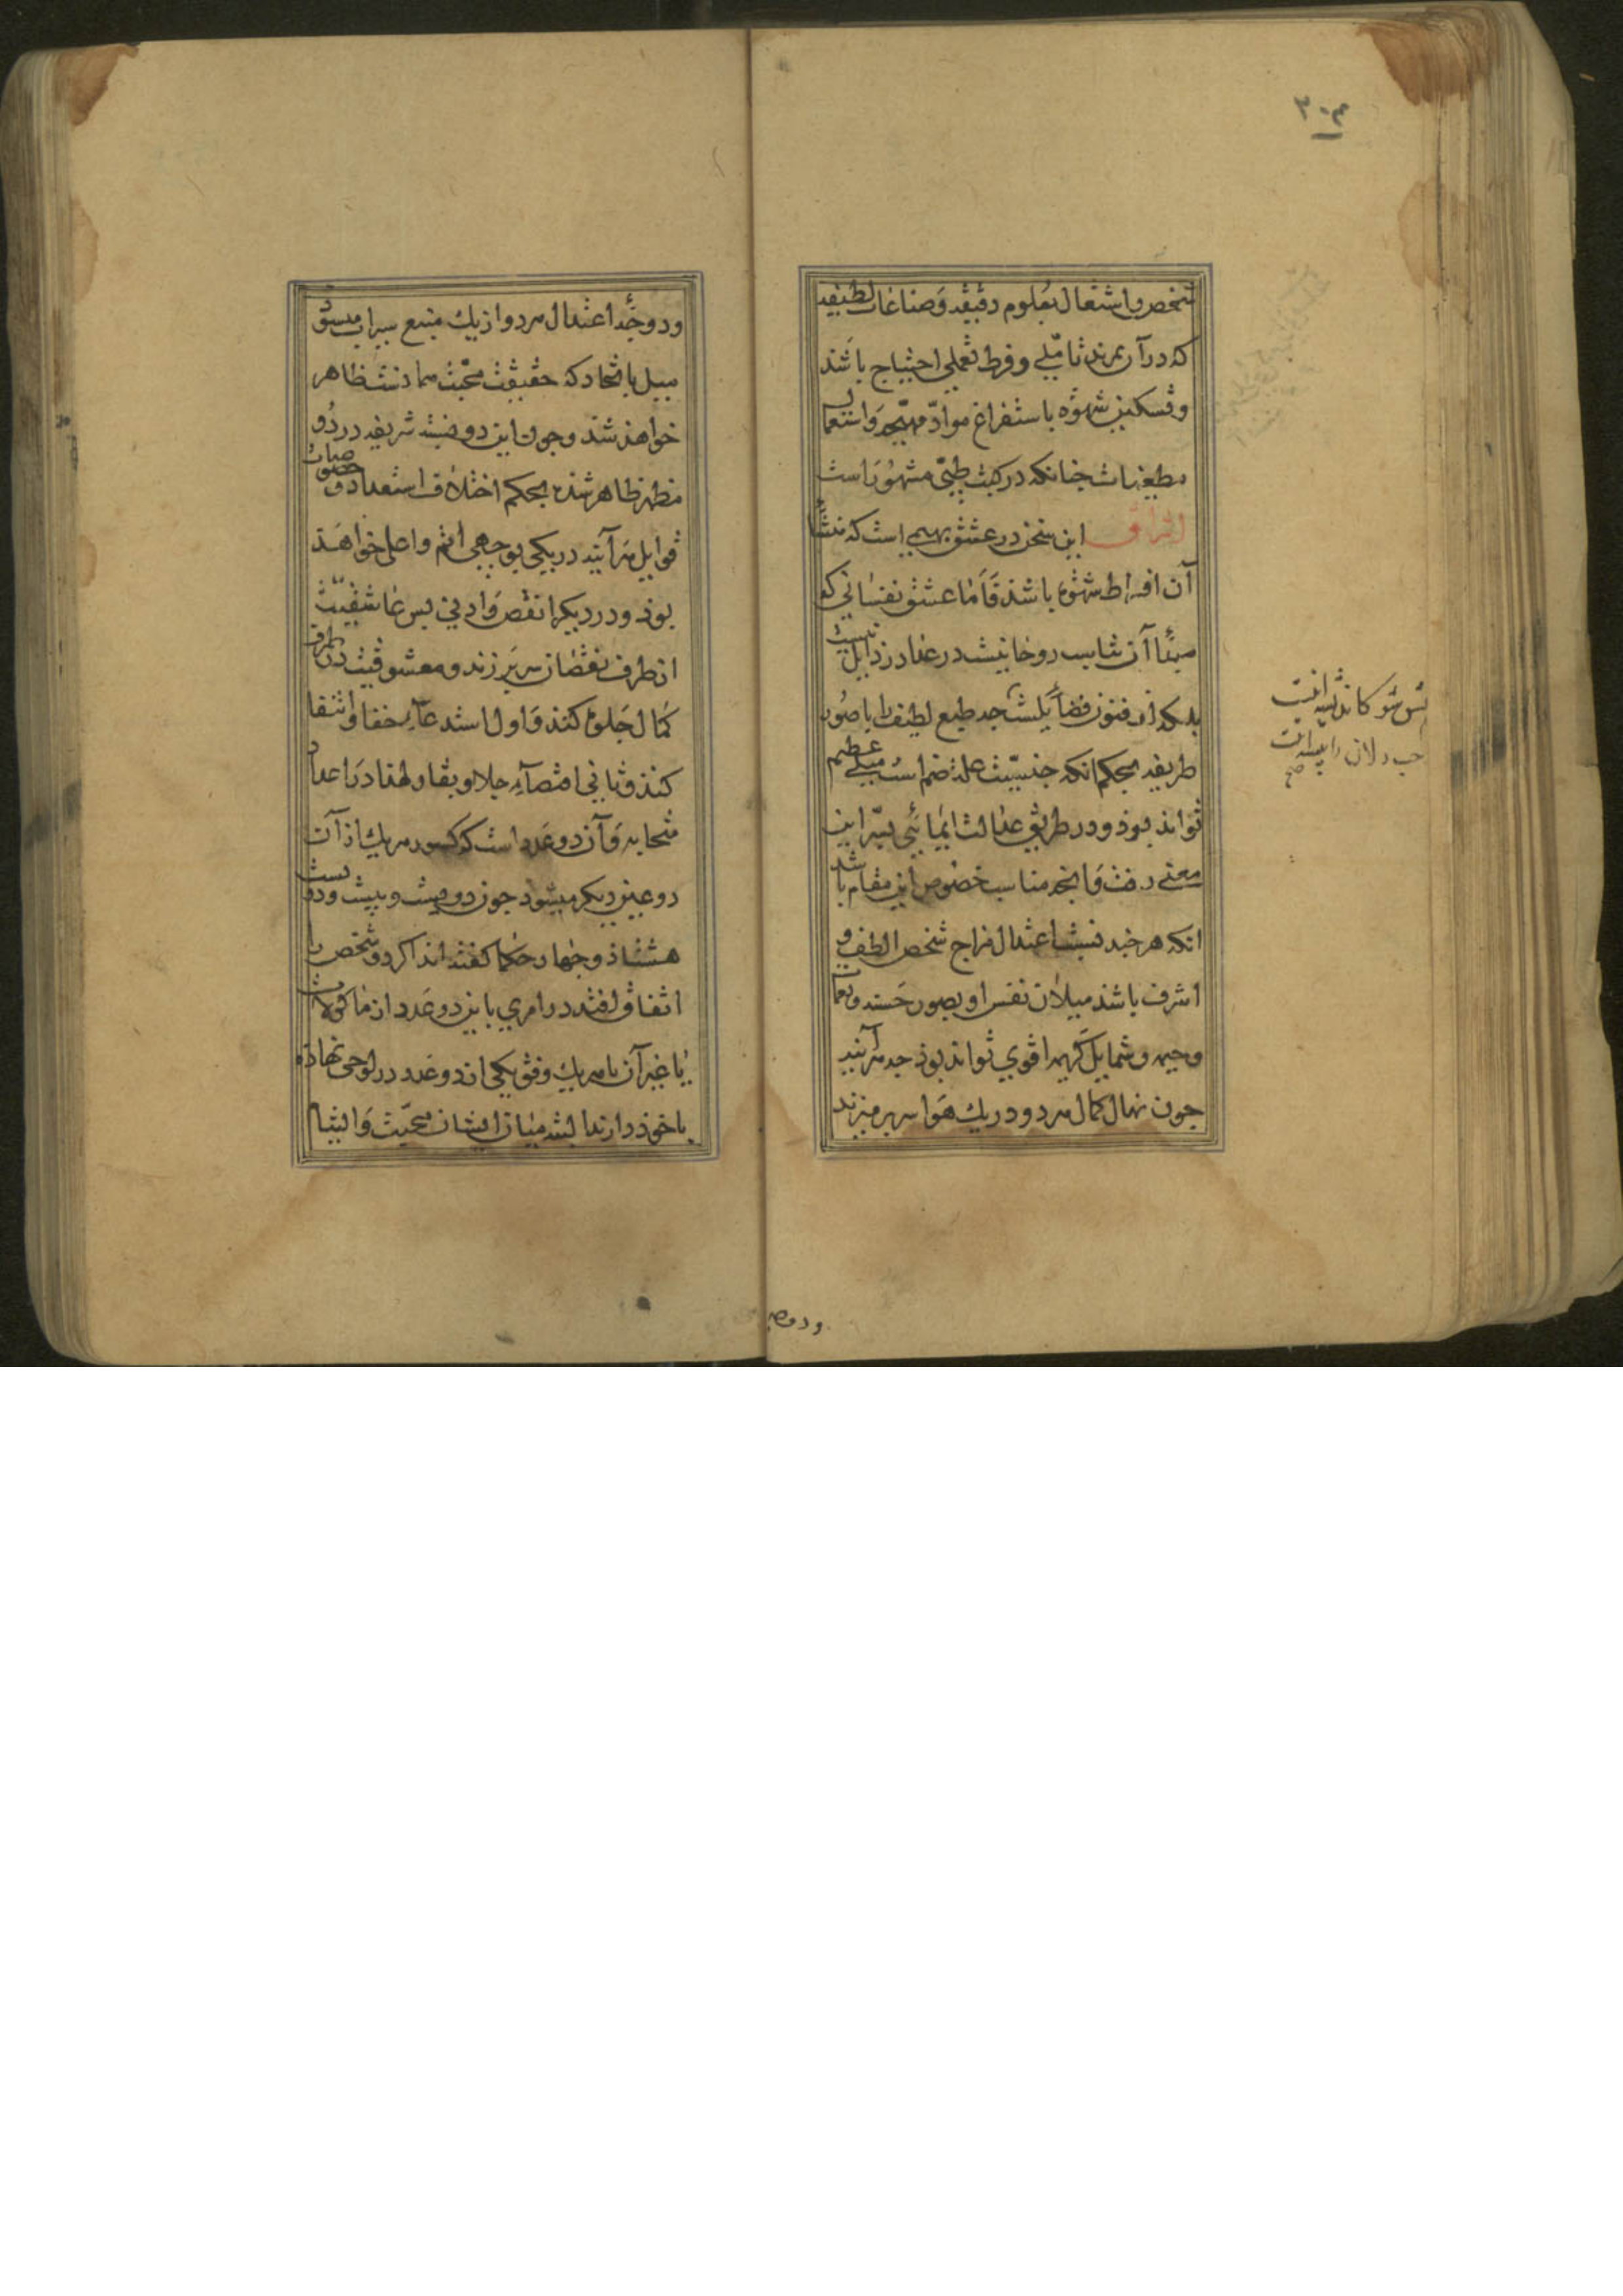 ۳۰۴
شخص و اشتغال بعلوم دقیقه و صناعات لطیفه
که در آن بمزید تأملی و فرط تعملی احتیاج باشد
و تسکین شهوة باستفراغ مواد مهیجه و استعمال
مطفیات چنانکه در کتب طبی مشهور است
اشراق این سخن در عشق بهیمی است که منشأ
آن افراط شهوة باشد و اما عشق نفسانی که
مبدأ آن تناسب روحانیست در عداد رذایل نیست
بلکه از فنون فضایلست چه طبع لطیف را با صور
ظریفه بحکم انکه جنسیت علة ضم است میلی عظیم
تواند بود و در طریق عدالت ایمائی بسر این
معنی رفت و انچه مناسب خصوص این مقام باشد
انکه هر چند نسبت اعتدال مزاج شخص الطف و
اشرف باشد میلان نفس او بصور حسنه و نغمات
و شمایل کریمه اقوی تواند بود چه هر آینه
چون نهال کمال هر دو در یک هوا سر بر میزند
و دوحه اعتدال هر دو از یک منبع سیراب میشود
میل باتحاد که حقیقت محبت همانست ظاهر
خواهد شد و چون این دو نسبت شریفه در دو
مظهر ظاهر شده بحکم اختلاف استعداد و خصوصیات
قوابل هر آینه در یکی بوجهی اتم و اعلی خواهد
بود و در دیگر انقص و ادنی پس عاشقیت
از طرف نقصان سر بر زند و معشوقیت در طرف
کمال جلوه کند و اول استدعاء خفا و انتفا
کند و ثانی اقتضاء جلا و بقا و لهذا در اعداد
متحابه و آن دو عدد است که کسور هر یک از آن
دو عین دیگر میشود چون دویست و بیست و دویست
هشتاد و چهار حکما گفته اند اگر دو شخص را
اتفاق افتد در امری باین دو عدد از ماکولات
یا غیر آن یا هر یک وفق یکی از دو عدد در لوحی نهاده
با خود دارند البته میان ایشان محبت و التیام